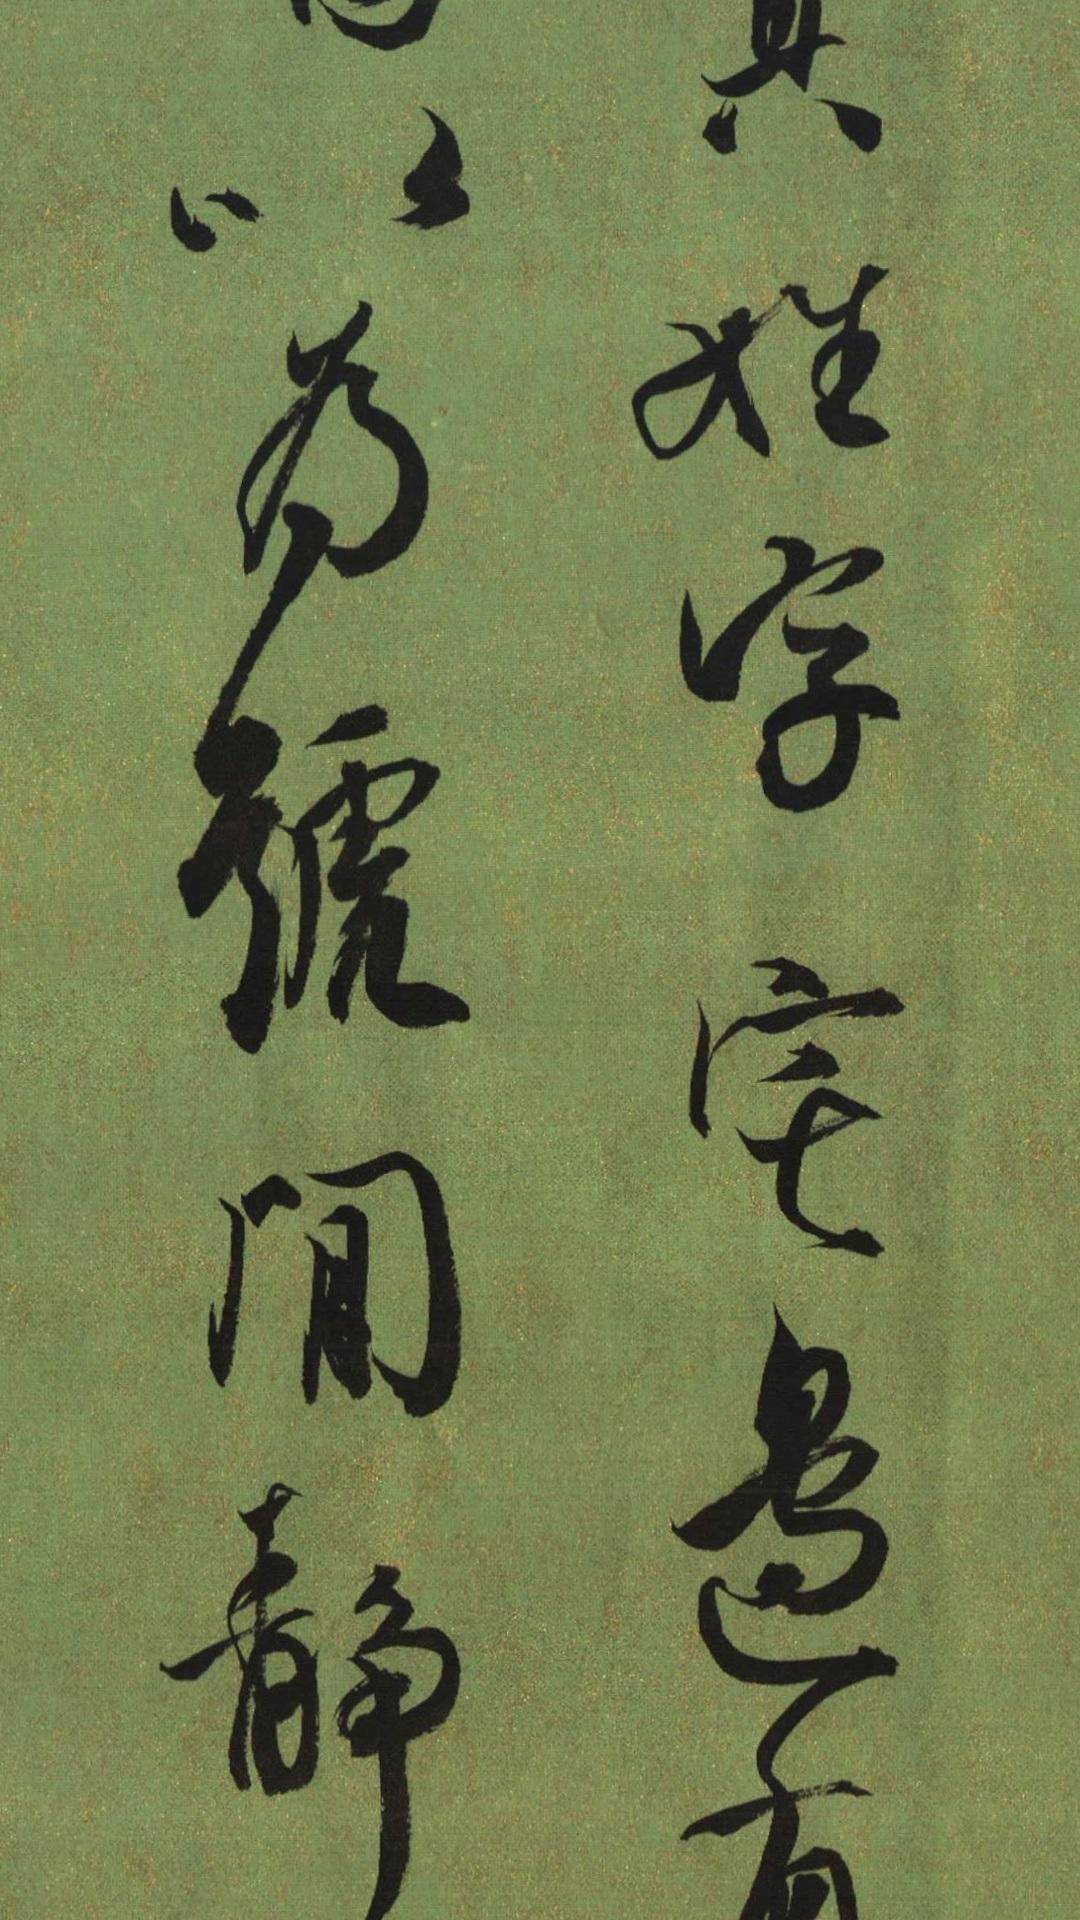 其姓字宅邊有
以為號閒静